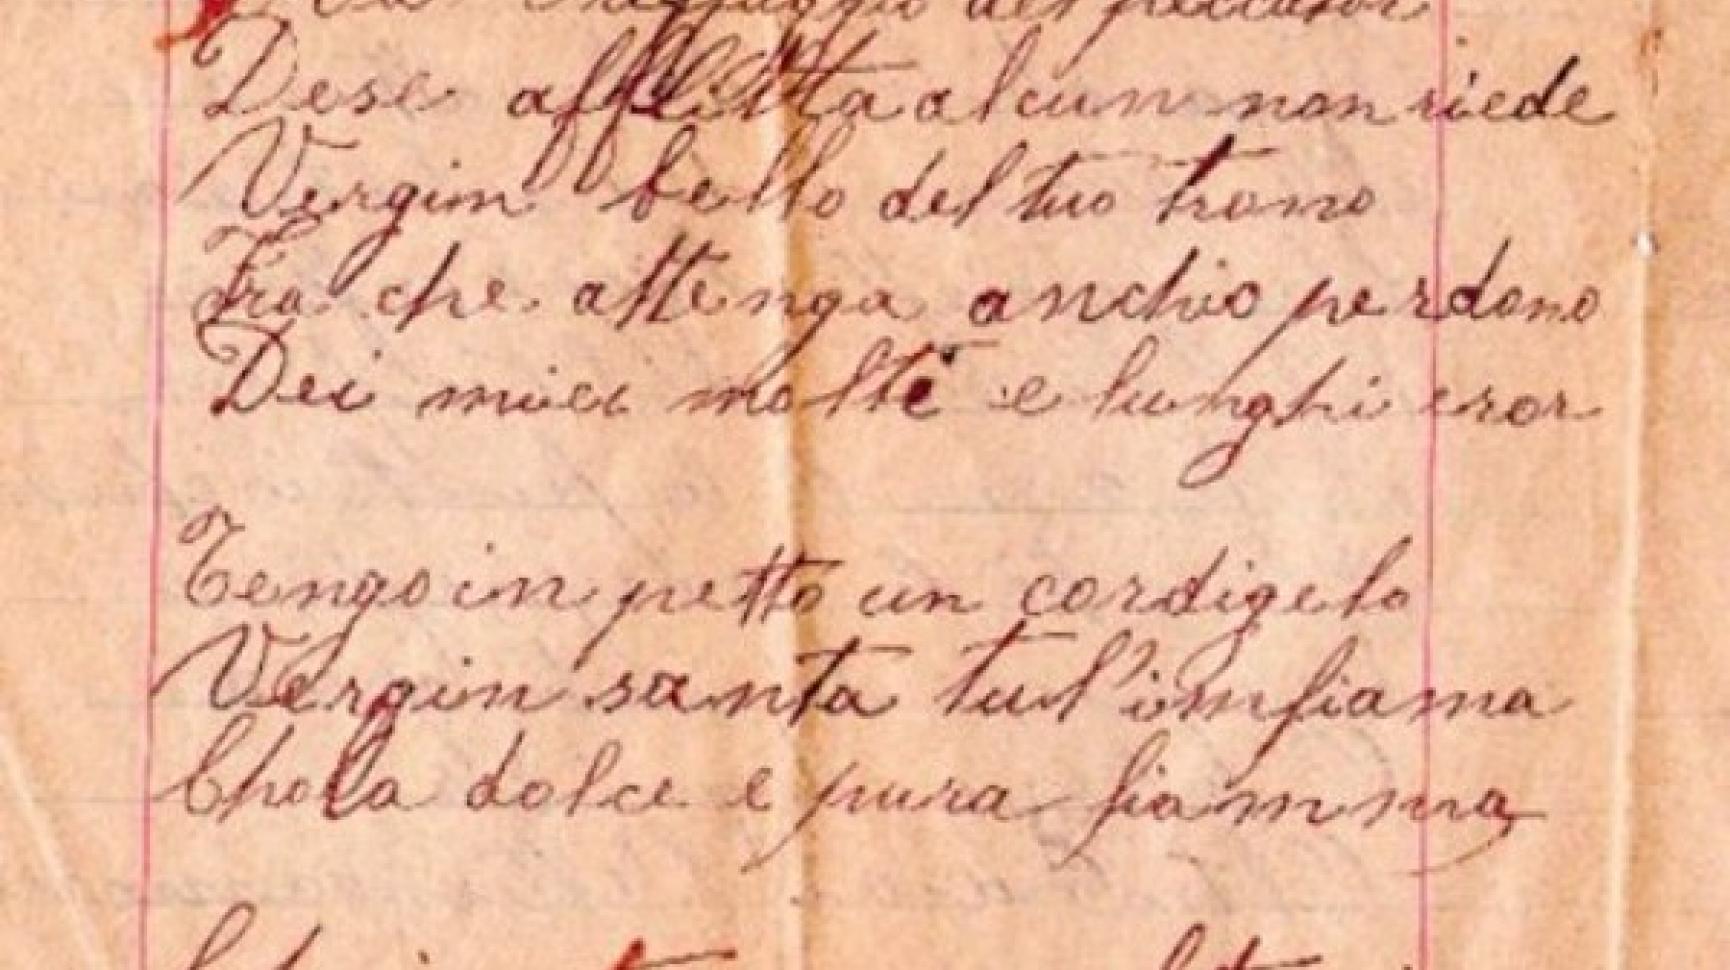 del peccator
Dese afflitta alcun non riede
Vergin bello del tuo trono
Fra che attenga anchio perdono
Dei miei molte e lunghi eror
Tengo in petto un cordigelo
Vergin santa tu l'imfiama
Chola dolce e pura fiamma